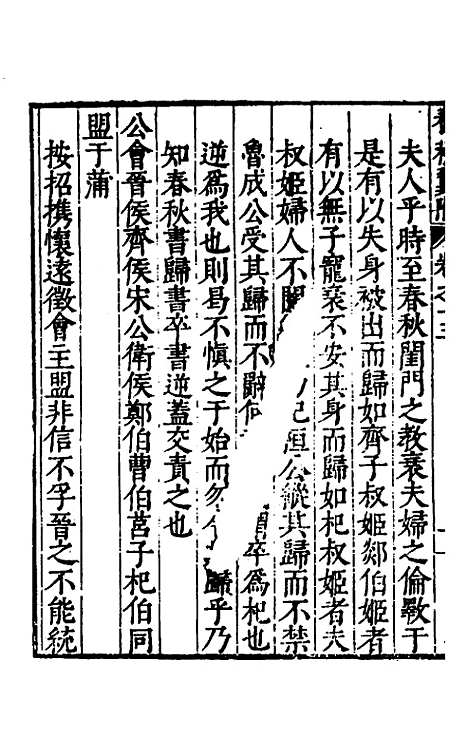 夫人乎時至春秋閨門之教衰夫婦之倫斁于
是有以失身被出而歸如齊子叔姬郯伯姬者
有以無子寵衰不安其身而歸如杞叔姬者夫
叔姬婦人不閑 杞桓公縱其歸而不禁
魯成公受其歸而不辭何 卒為杞也
逆為我也則曷不慎之于始而勿令 歸乎乃
知春秋書歸書卒書逆蓋交責之也
公會晉侯齊侯宋公衛侯鄭伯曹伯莒子杞伯同
盟于蒲
按招携懷遠徵會主盟非信不孚晉之不能統